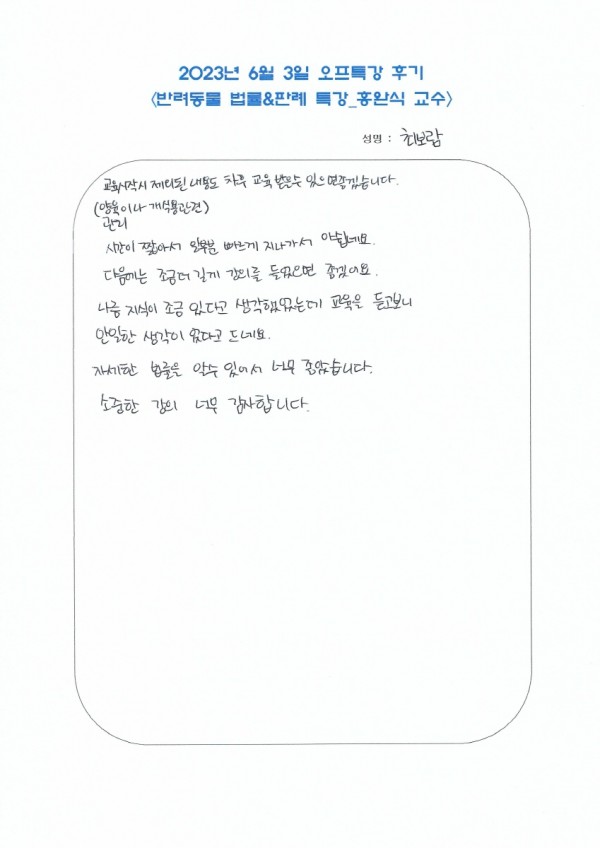 2023년 6월 3일 오프특강 후기
<반려동물 법률&판례 특강_홍완식 교수>
성명 : 최보람
교육시작시 제외된 내용도 차후 교육 받을수 있으면좋겠습니다.
(양육이나 개식용관련)
관리
시간이 짧아서 일부분 빠르게 지나가서 아쉽네요.
다음에는 조금더 길게 강의를 들었으면 좋겠어요.
나름 지식이 조금 있다고 생각했었는데 교육을 듣고보니
안일한 생각이 었다고 드네요.
자세한 법률을 알수 있어서 너무 좋았습니다.
소중한 강의 너무 감사합니다.